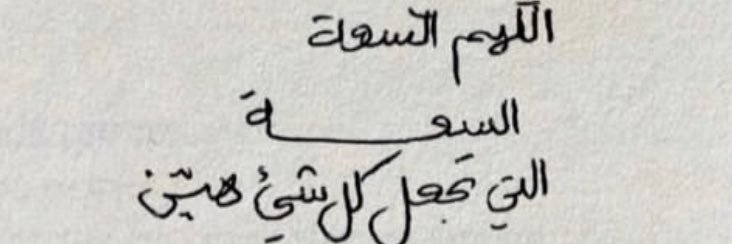 اللهم السعة
السعـــــة
التي تجعل كل شئٍ هيّن